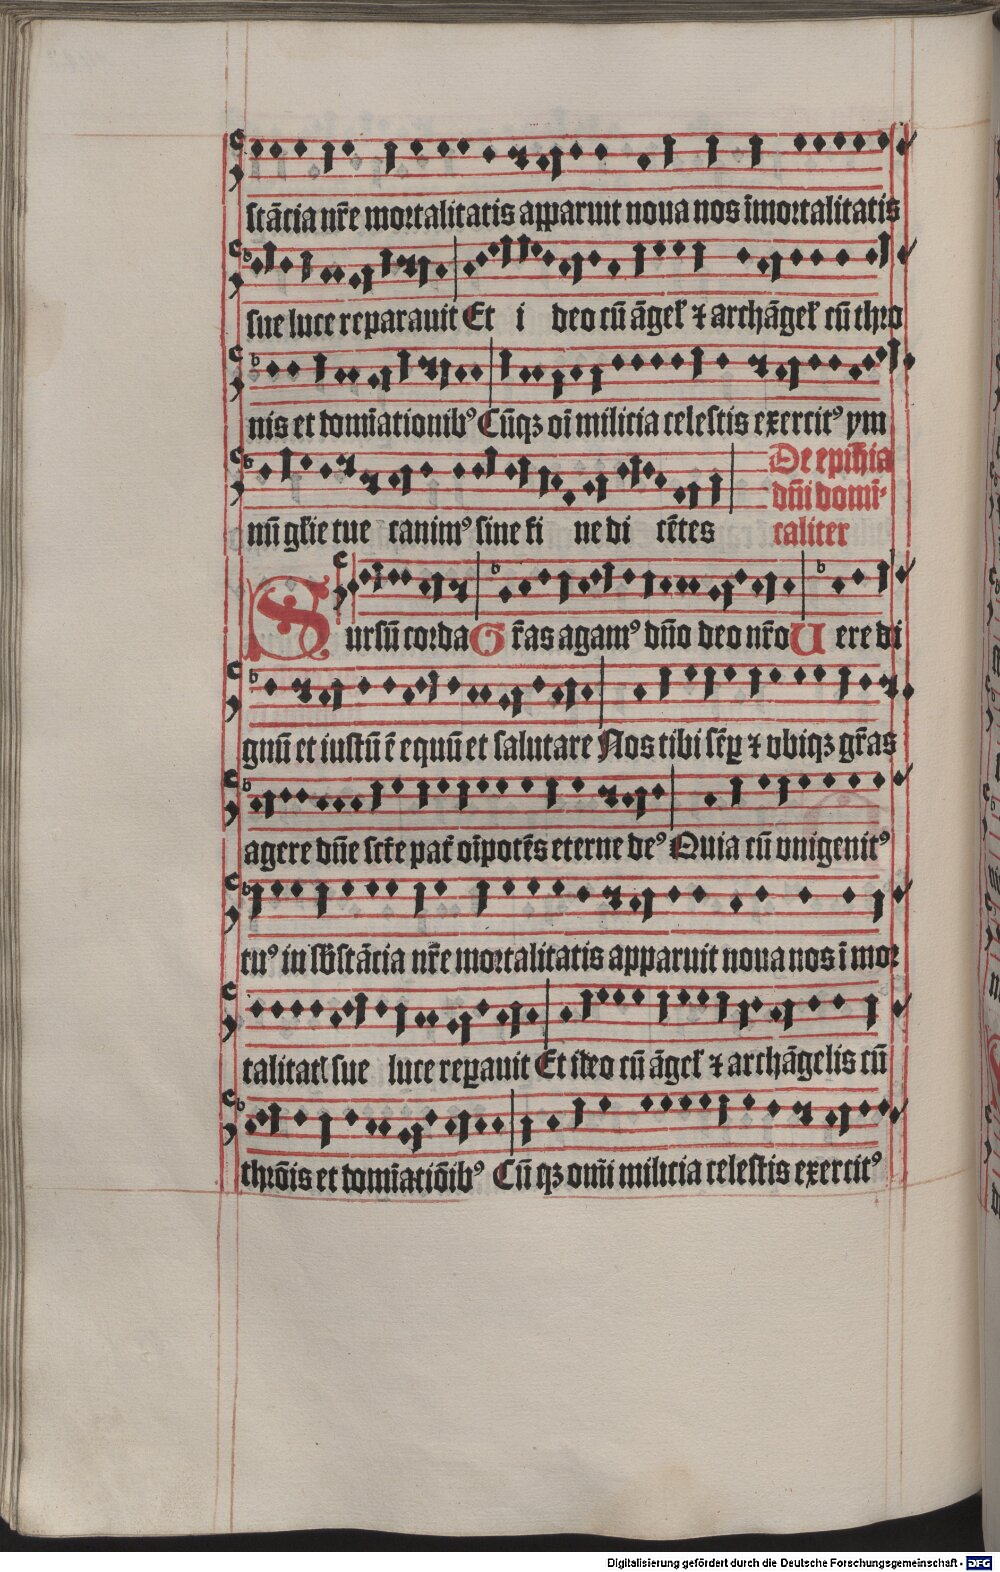 stācia nr̄e mortalitatis apparuit noua nos īmortalitatis
sue luce reparauit Et i deo cū āgel̉ ⁊ archāgel̉ cū thro
nis et domīationibꝰ Cūqꝫ oī milicia celestis exercitꝰ ym
nū gl̄ie tue canimꝰ sine fi ne di cētes
De epiph̄ia
dn̄i domī-
caliter
Sursū corda Gr̄as agamꝰ dn̄o deo nr̄o Uere di
gnū et iustū ē equū et salutare Nos tibi sēꝑ ⁊ vbiqꝫ gr̄as
agere dn̄e sct̄e pat̄ oīpotēs eterne deꝰ Quia cū vnigenitꝰ
tuꝰ in sb̄stācia nr̄e mortalitatis apparuit noua nos ī mor
talitatꝭ sue luce reꝑauit Et ideo cū āgel̉ ⁊ archāgelis cū
thrōis et domīatiōibꝰ Cū qꝫ om̄i milicia celestis exercitꝰ
Digitalisierung gefördert durch die Deutsche Forschungsgemeinschaft - DFG